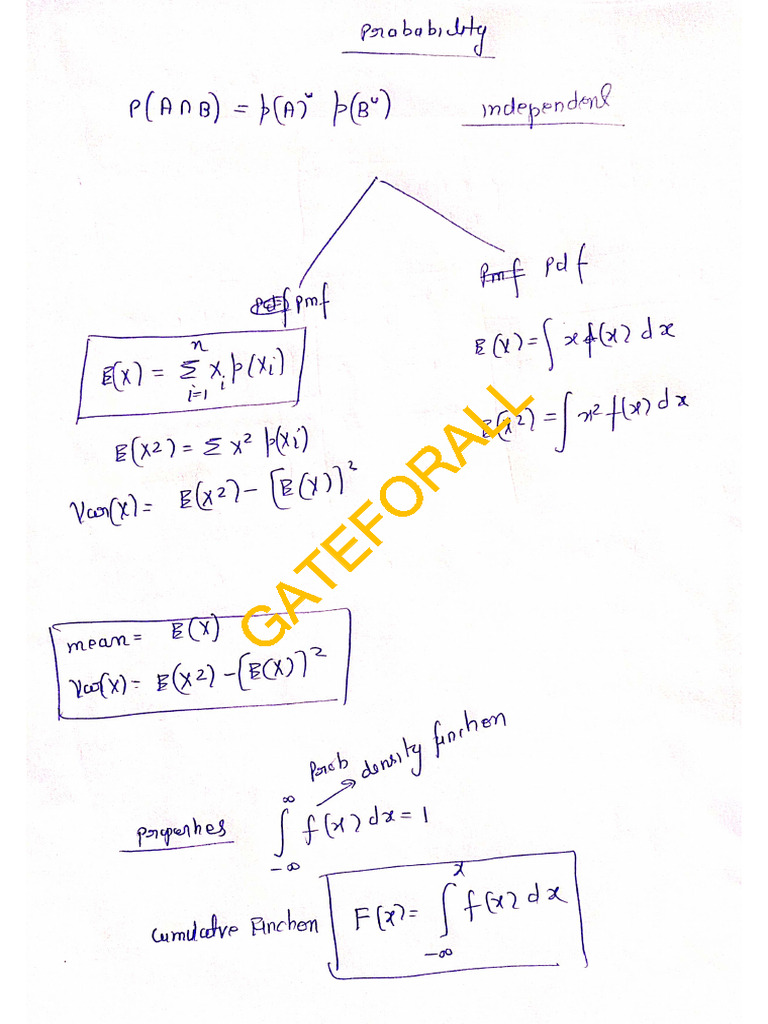 Probability
P(A∩B) = p(A)ᵕ p(Bᵕ) independent
pmf
Pmf Pdf
E(X) = Σ_{i=1}^{n} x_i p(x_i)
E(X) = ∫ x f(x) dx
E(X2) = Σ x² p(xi)
E(X2) = ∫ x² f(x) dx
Var(X) = E(X2) - [E(X)]²
GATEFORALL
mean = E(X)
Var(X) = E(X2) - [E(X)]²
Prob density function
properties ∫_{-∞}^{∞} f(x) dx = 1
Cumulative Function F(x) = ∫_{-∞}^{x} f(x) dx